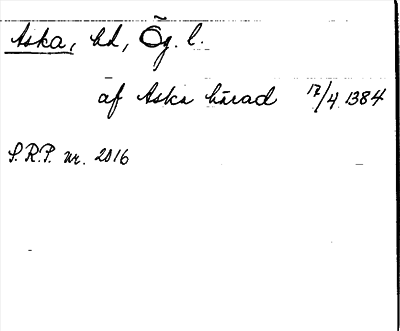 Aska, hd, Ög. l.
af Aska härad 17/4 1384
S.R.P. nr. 2016